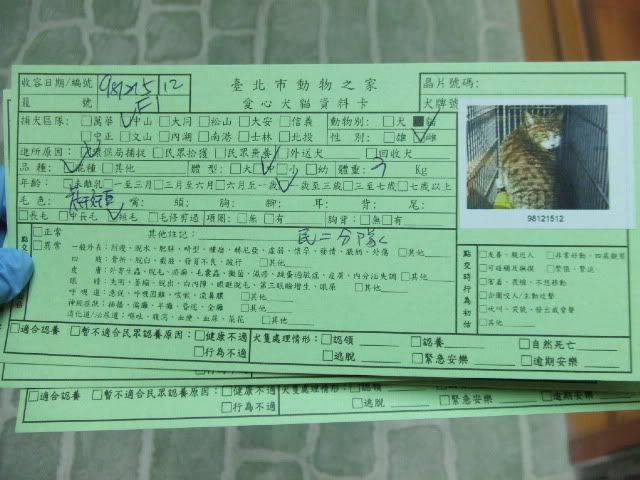 收容日期/編號 981215 12 臺北市動物之家 晶片號碼:
籠 號 愛心犬貓資料卡 犬牌號
捕犬區隊: □萬華 □中山 □大同 □松山 □大安 □信義 動物別: □犬 ■貓
□中正 □文山 □內湖 □南港 □士林 □北投 性 別: □雄 □雌
進所原因: □環保局捕捉 □民眾拾獲 □民眾棄養 □外送犬 □回收犬
品 種: □混種 □其他 體 型: □大 □中 □小 □幼 體重: Kg
年齡: □未離乳 □一至三月 □三月至六月 □六月至一歲 □一歲至三歲 □三至七歲 □七歲以上
毛 色: 嘴: 頭: 胸: 腳: 耳: 背: 尾:
□長毛 □中長毛 □短毛 □毛修剪過 項圈: □無 □有 胸背: □無 □有
98121512
□正常 其他註記: 民二分隊
□異常 一般外表: □其他
四 肢: 骨折、脫臼、截肢、發育不良、跛行 □其他
皮 膚: □其他
眼 睛: □其他
呼吸道: □其他
神經症狀: □其他
消化道/泌尿道: 嘔吐、腹瀉、血便、血尿、 □其他
點交時行為初估
□友善、親近人 □非常好動、
□可碰觸及撫摸 □緊張、
□害羞、畏縮、不想移動
□企圖咬人/主動攻擊
□其他
□適合認養 □暫不適合民眾認養原因: □健康不適 犬隻處理情形: □認領 □認養 □自然死亡
□行為不適 □逃脫 □緊急安樂 □逾期安樂
□適合認養 □暫不適合民眾認養原因: □健康不適 犬隻處理情形: □認領 □認養 □自然死亡
□行為不適 □逃脫 □緊急安樂 □逾期安樂